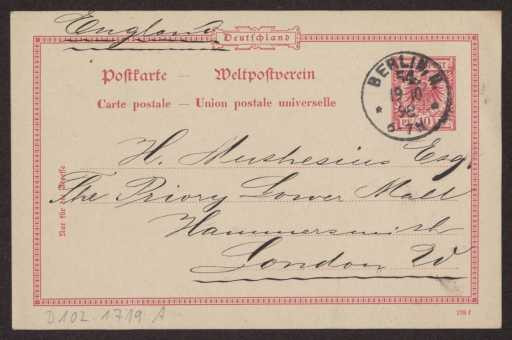 England
Deutschland
Postkarte — Weltpostverein
Carte postale — Union postale universelle
BERLIN, N.
54.
19 10
98
6-7N.
10
H. Muthesius Esq.
The Priory Lower Mall
Hammersmith
London W
Nur für die Adresse
D102-1719 A